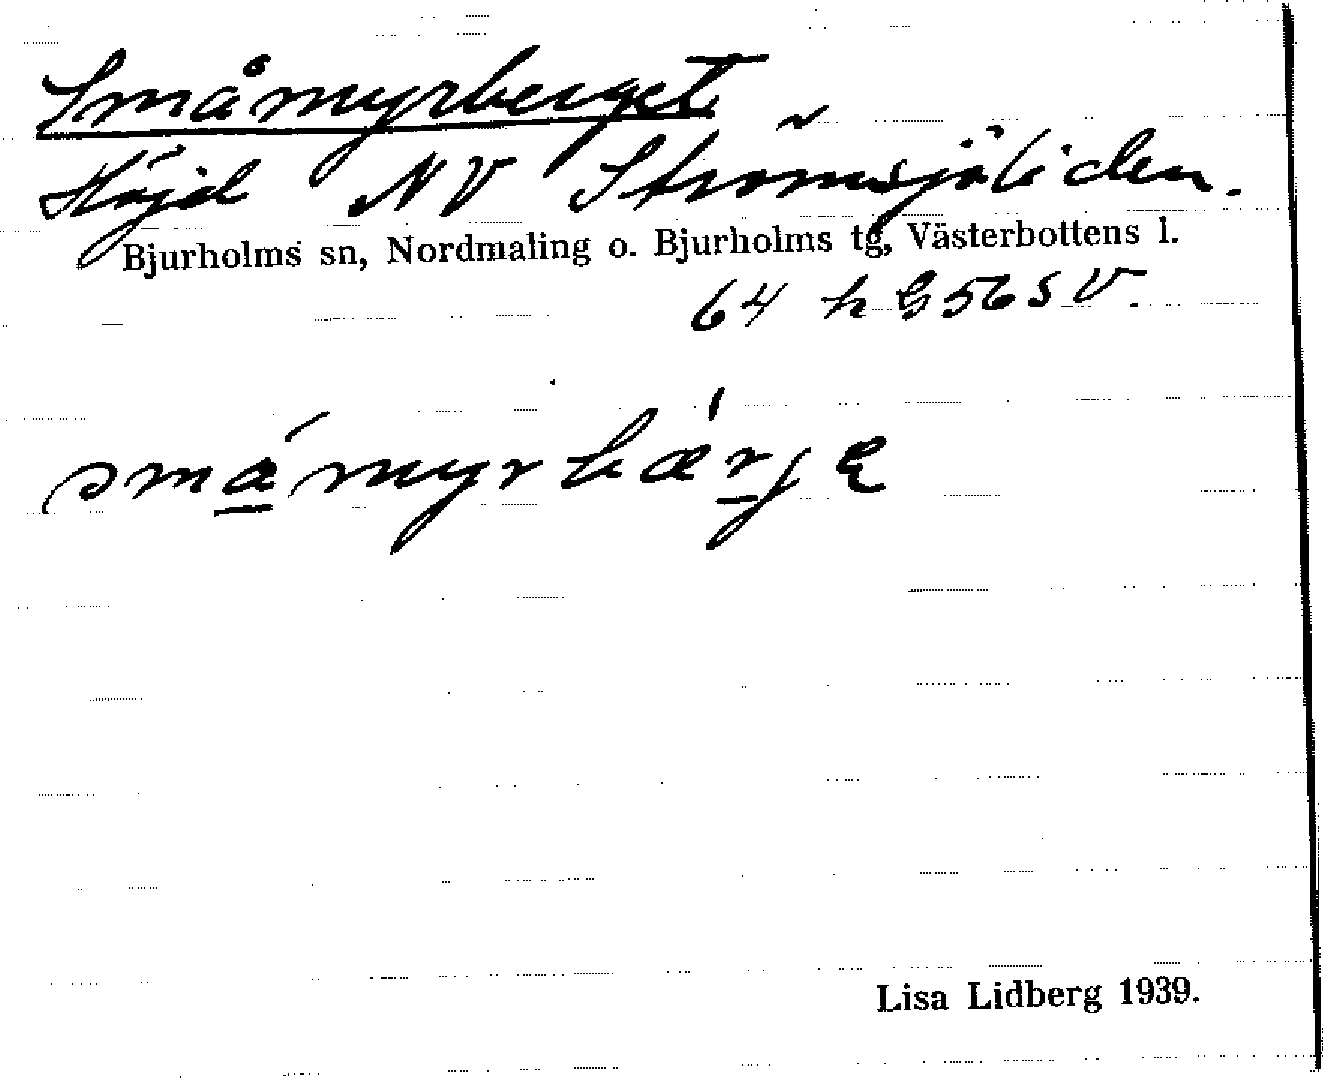 Småmyrberget
Höjd NV Strömsjöliden.
Bjurholms sn, Nordmaling o. Bjurholms tg, Västerbottens l.
64 h G 56 SV.
småmyrbærje
Lisa Lidberg 1939.